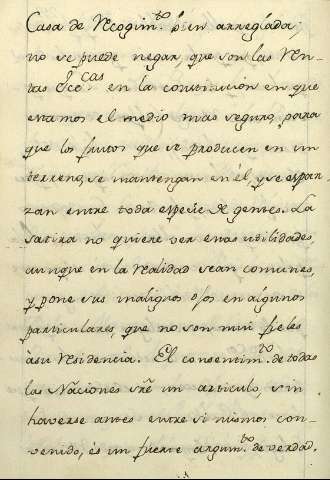 Casa de Recogim.to bien arreglada;
no se puede negar, que son las Ren-
tas Ecc.cas en la constitucion en que
estamos el medio mas seguro, para
que los frutos que se producen en un
terreno, se mantengan en él, y se espar-
zan entre toda especie de gentes. La
satira no quiere ver estas utilidades,
aunque en la realidad sean comunes,
y pone sus malignos ojos en algunos
particulares, que no son mui fieles
àsu residencia. El consentim.to de todas
las Naciones sre un articulo, sin
haverse antes entre si mismos con-
venido, és un fuerte argum.to de verdad.